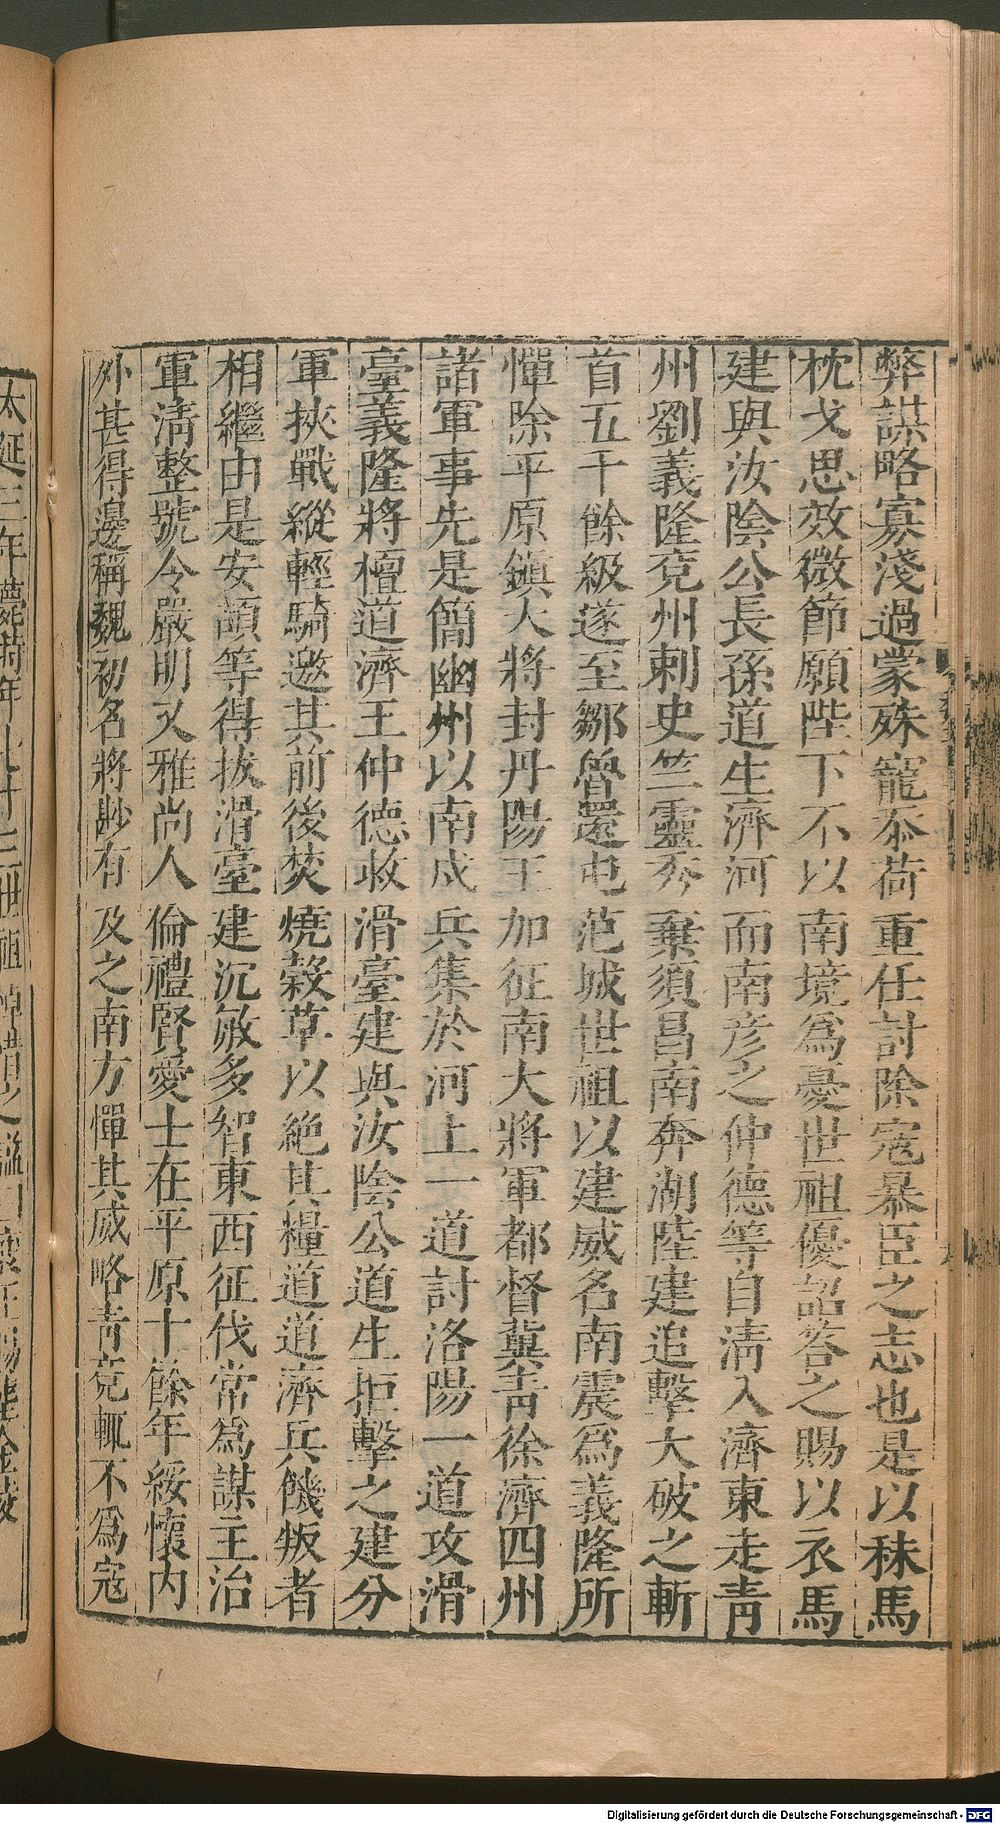 弊謀略寡淺過蒙殊寵忝荷重任討除寇暴臣之志也是以秣馬
枕戈思效微節願陛下不以南境爲憂世祖優詔答之賜以衣馬
建與汝陰公長孫道生濟河而南彦之仲德等自淸入濟東走靑
州劉義隆兗州刺史竺靈秀棄須昌南奔湖陸建追擊大破之斬
首五千餘級遂至鄒魯還屯范城世祖以建威名南震爲義隆所
憚除平原鎮大將封丹陽王加征南大將軍都督冀靑徐濟四州
諸軍事先是簡幽州以南戍兵集於河上一道討洛陽一道攻滑
臺義隆將檀道濟王仲德救滑臺建與汝陰公道生拒擊之建分
軍挾戰縱輕騎邀其前後焚燒榖草以絶其糧道道濟兵饑叛者
相繼由是安頡等得拔滑臺建沉敏多智東西征伐常爲謀主治
軍淸整號令嚴明又雅尚人倫禮賢愛士在平原十餘年綏懷内
外甚得邊稱魏初名將尠有及之南方憚其威略靑兗輒不爲寇
太延三年薨時年
Digitalisierung gefördert durch die Deutsche Forschungsgemeinschaft - DFG